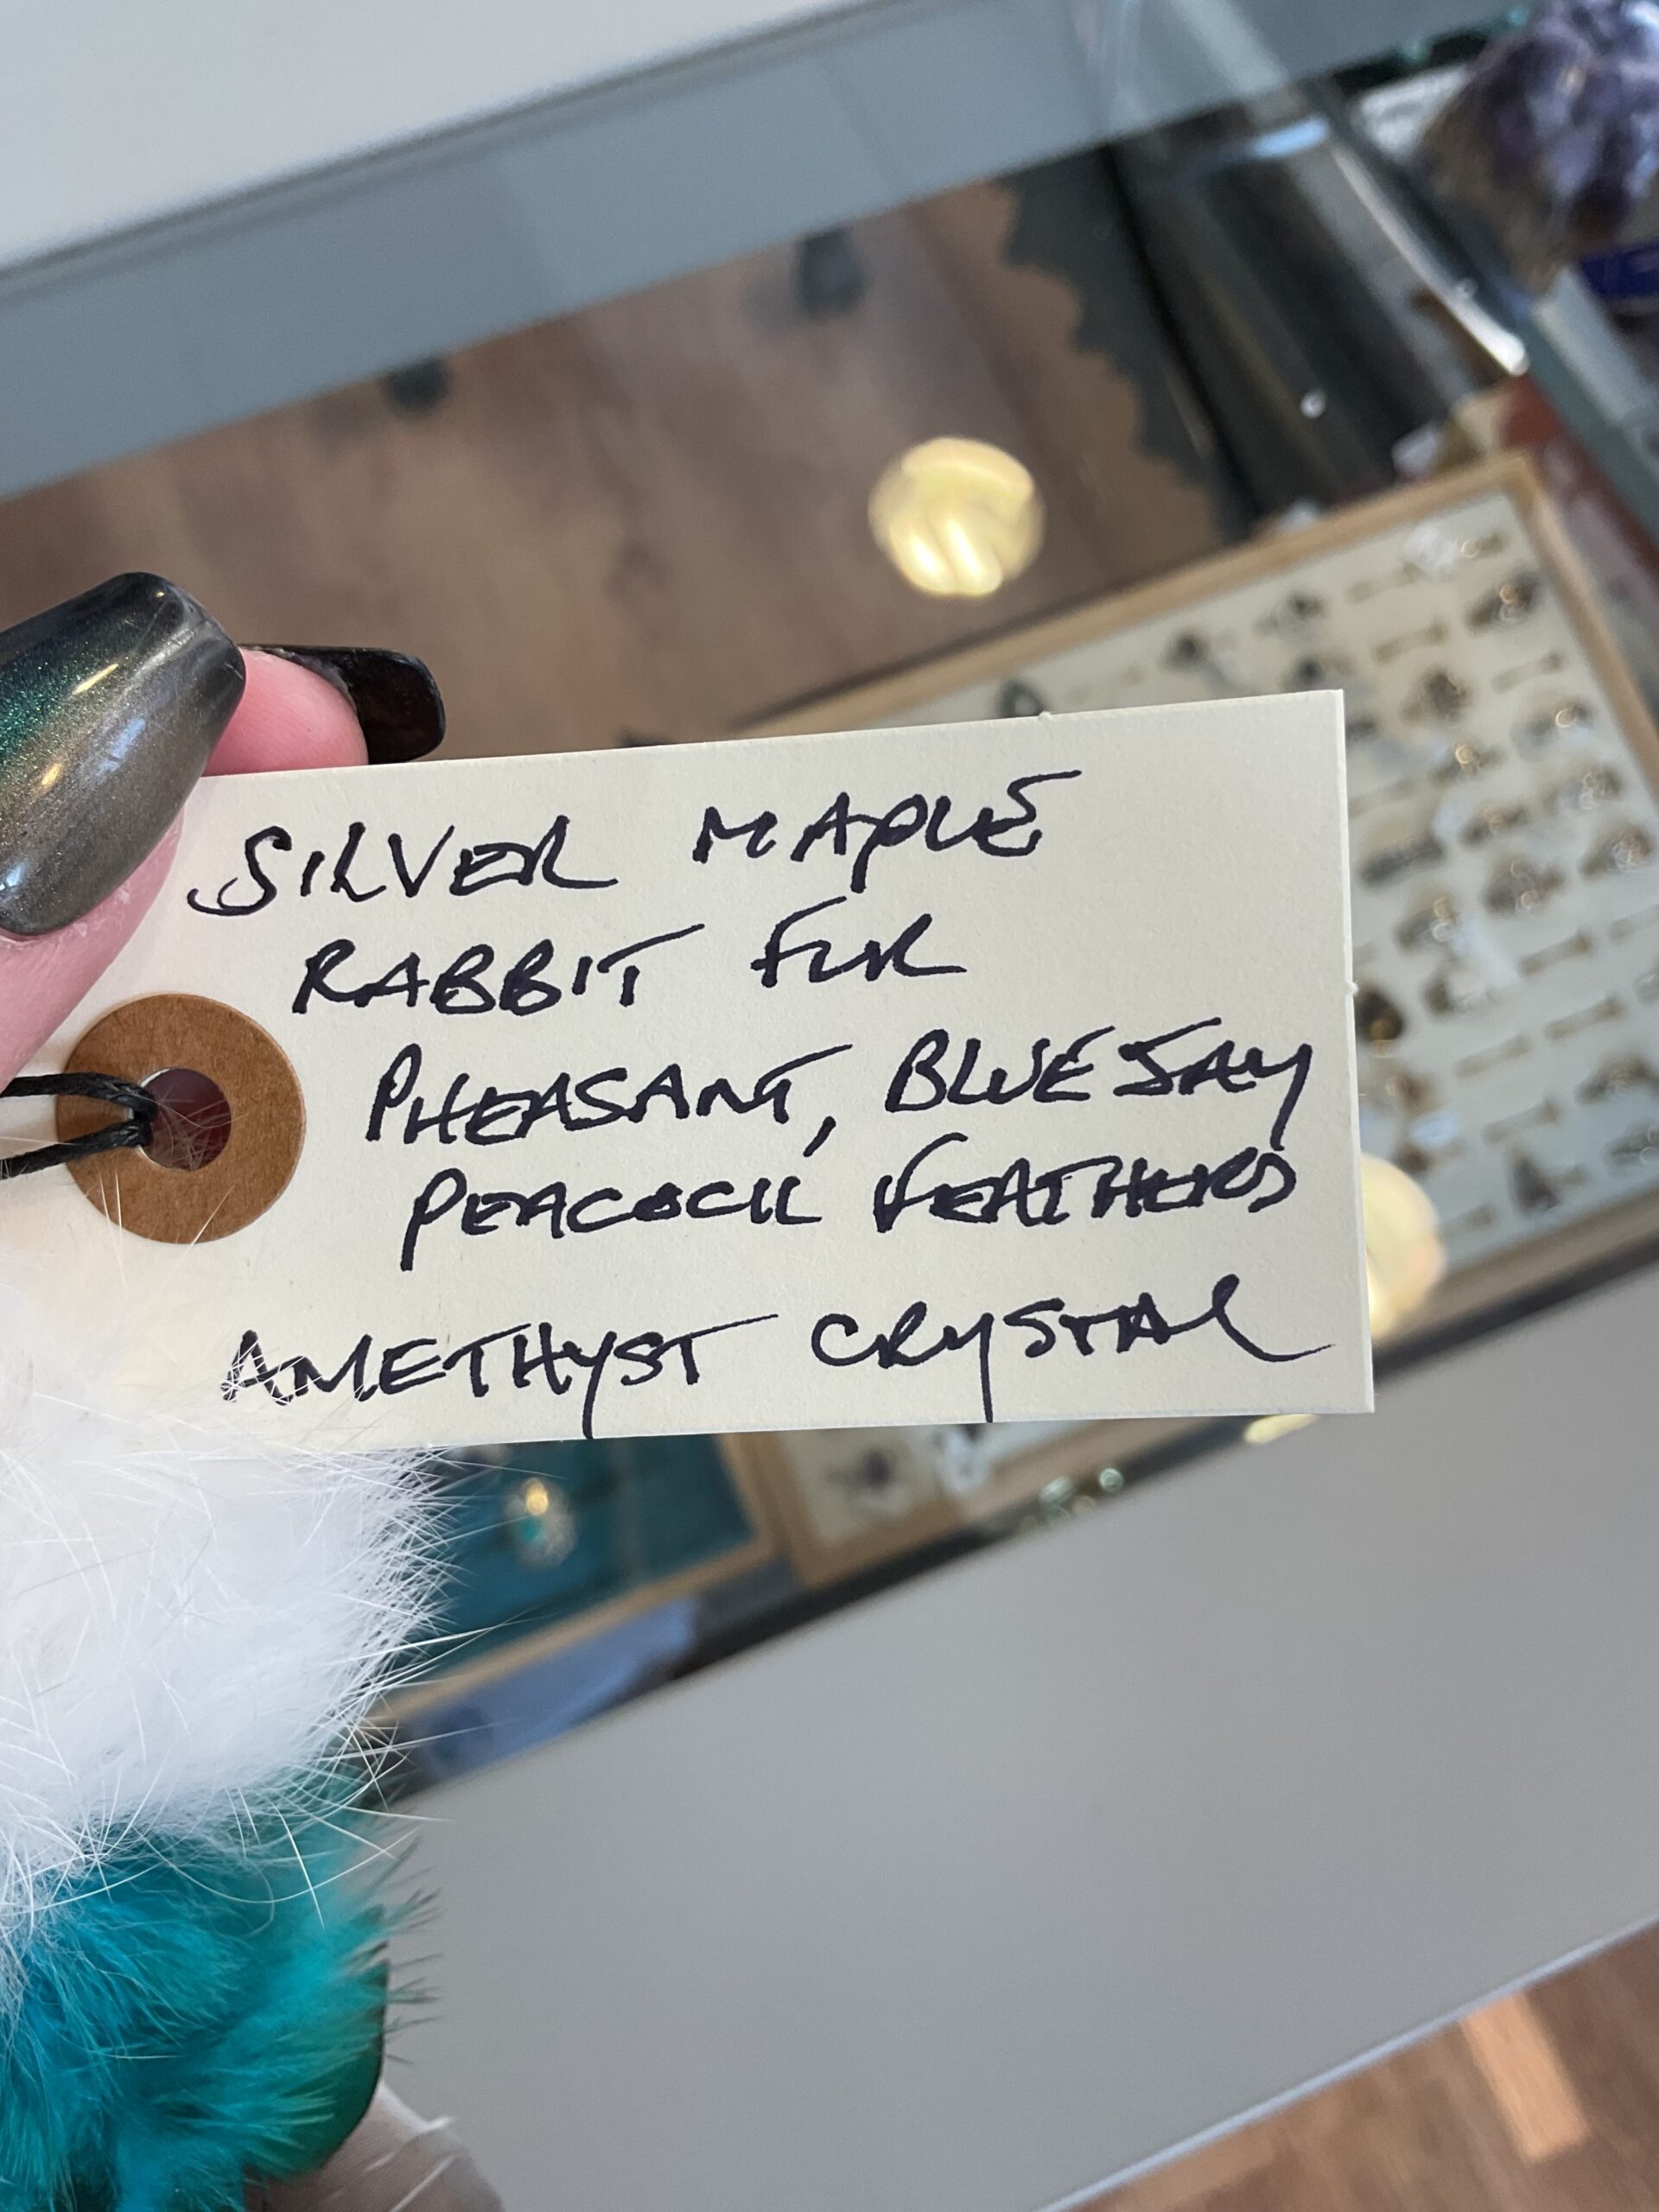 SILVER MAPLE
RABBIT FUR
PHEASANT, BLUEJAY
PEACOCK FEATHERS
AMETHYST CRYSTAL